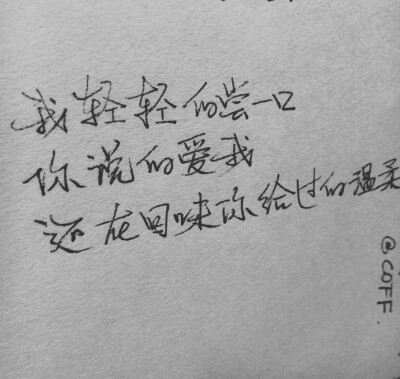 我轻轻的尝一口
你说的爱我
还在回味你给过的温柔
@COFF.